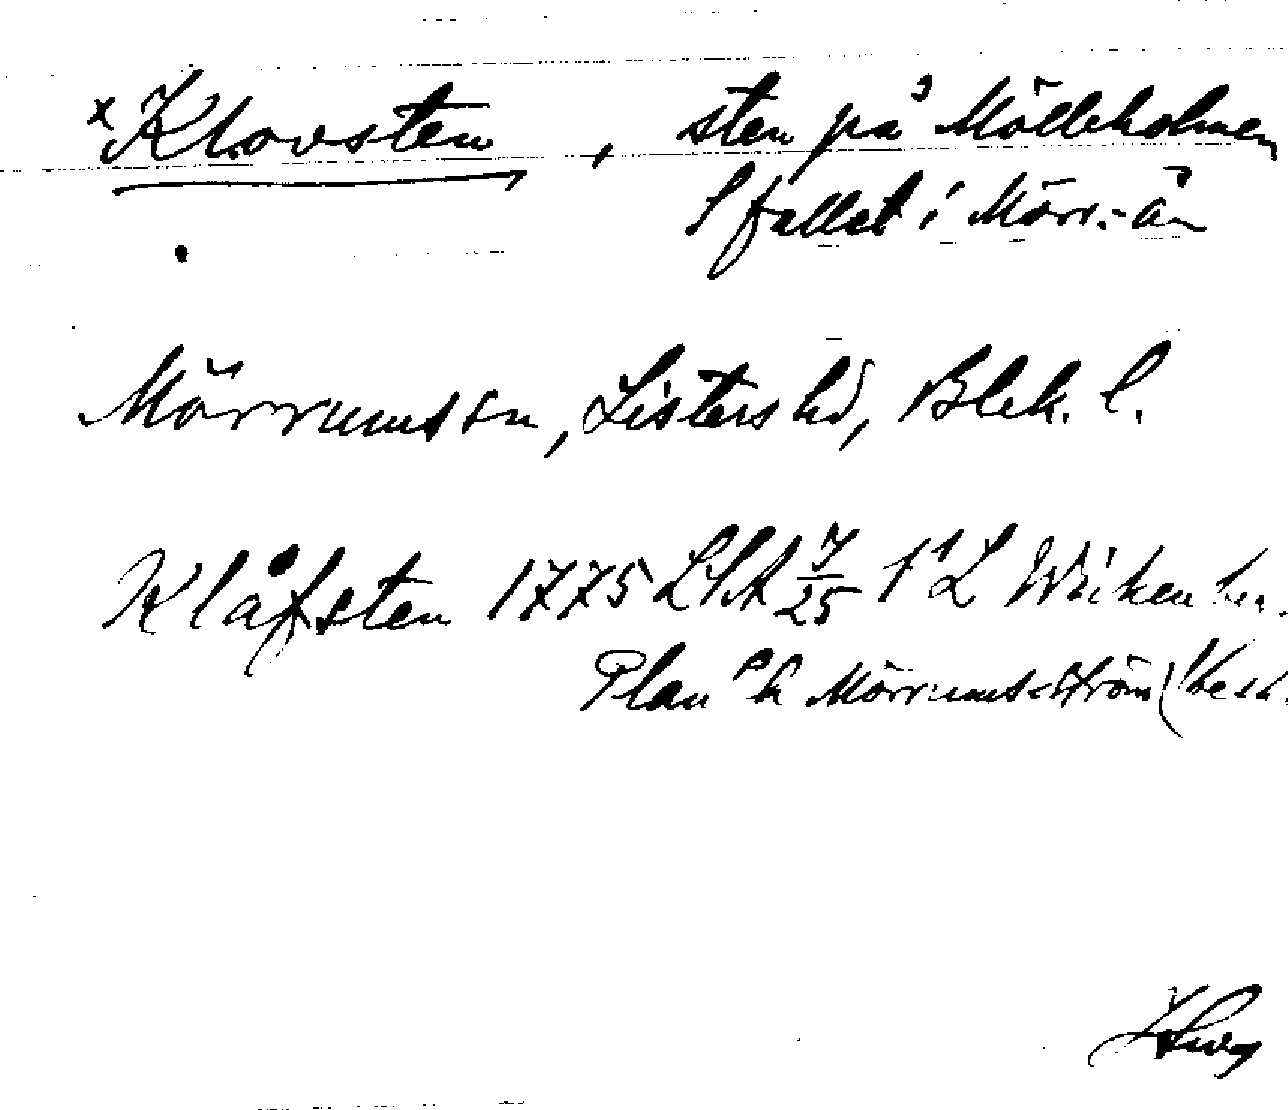 x Klovsten, sten på Mölleholmen
S fallet i Mörr.-ån
Mörrums sn, Listers hd, Blek. l.
Klåfsten 1775 LSA 7/25 1¹ L Wiken
Plan Mörrums ström